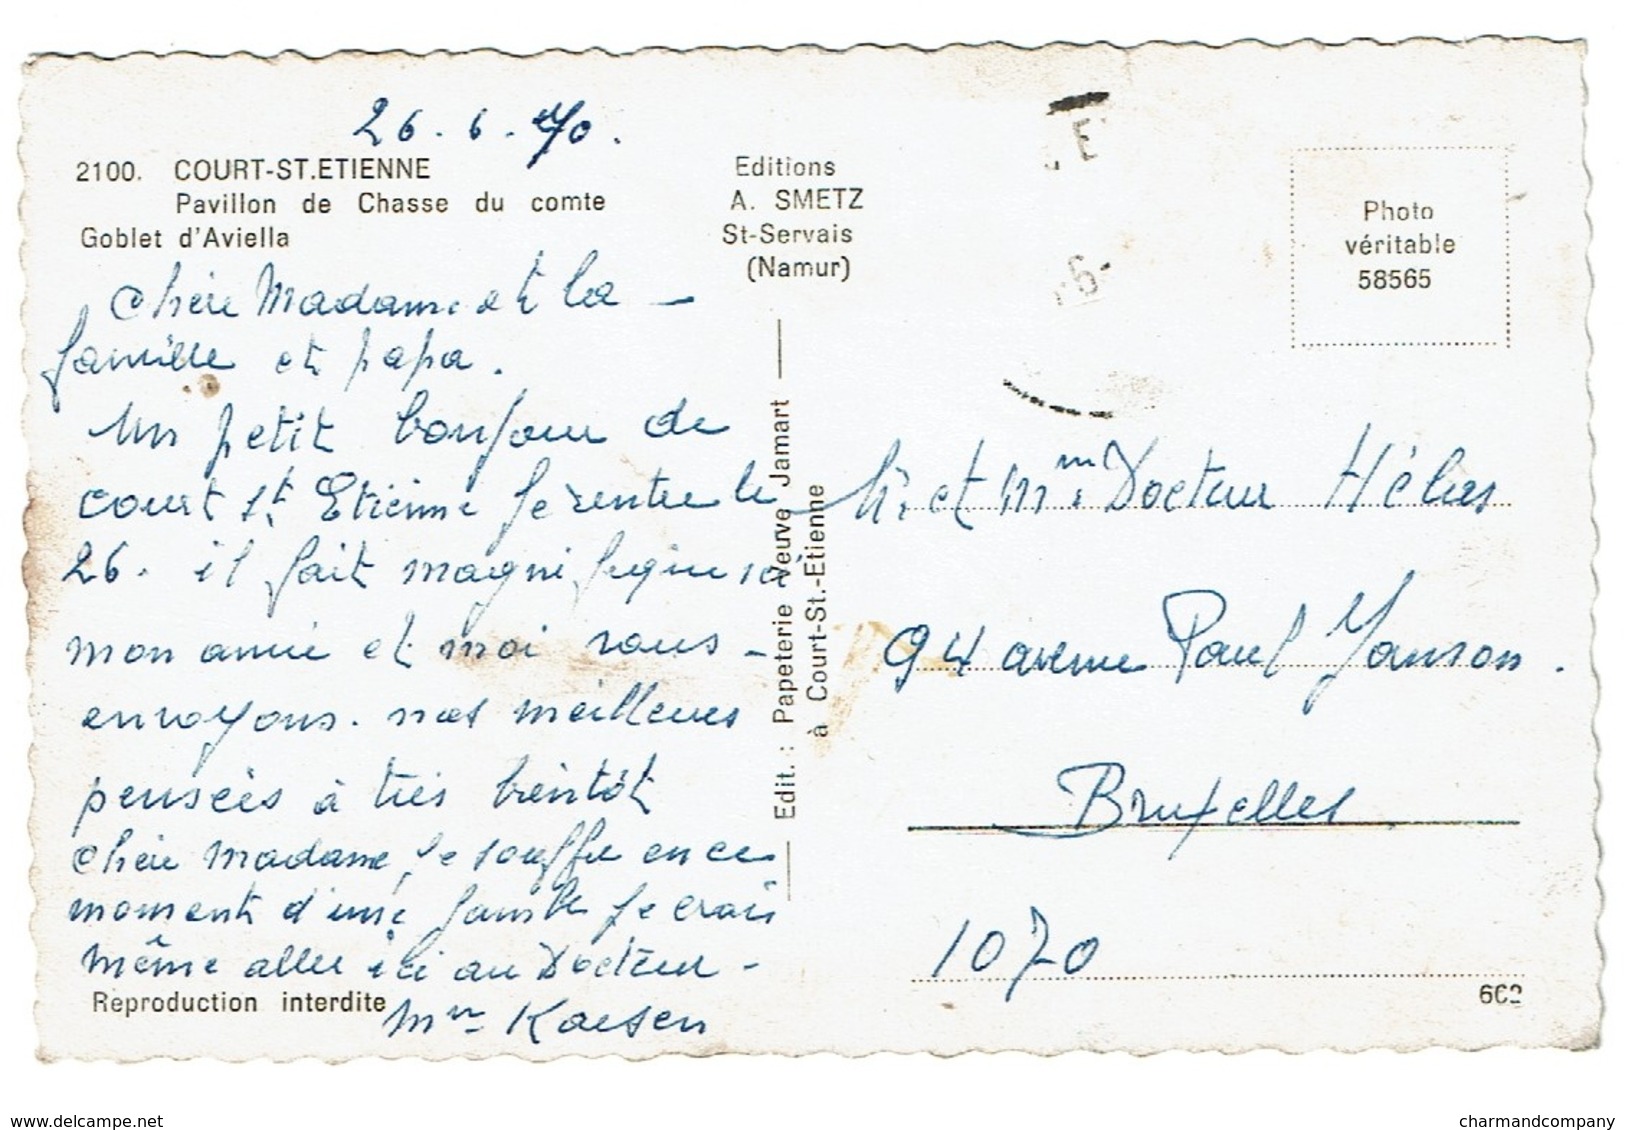 26.6.70.
2100. COURT-ST.ETIENNE
Pavillon de Chasse du comte
Goblet d'Aviella
Chère Madame et la
famille et papa.
Un petit bonjour de
court St Etienne je rentre le
26. il fait magnifique ici
mon amie et moi vous
envoyons nos meilleures
pensées à très bientôt
Chère Madame, je souffre en ce
moment d'une jambe je crois
même aller ici au Docteur -
Mme Kaesen
Reproduction interdite
Editions
A. SMETZ
St-Servais
(Namur)
Edit. : Papeterie Veuve Jamart
à Court-St.-Etienne
E
6-
Photo
véritable
58565
Mr. et Mme Docteur Hélas
94 avenue Paul Janson.
Bruxelles
1070
delcampe.net
charmandcompany